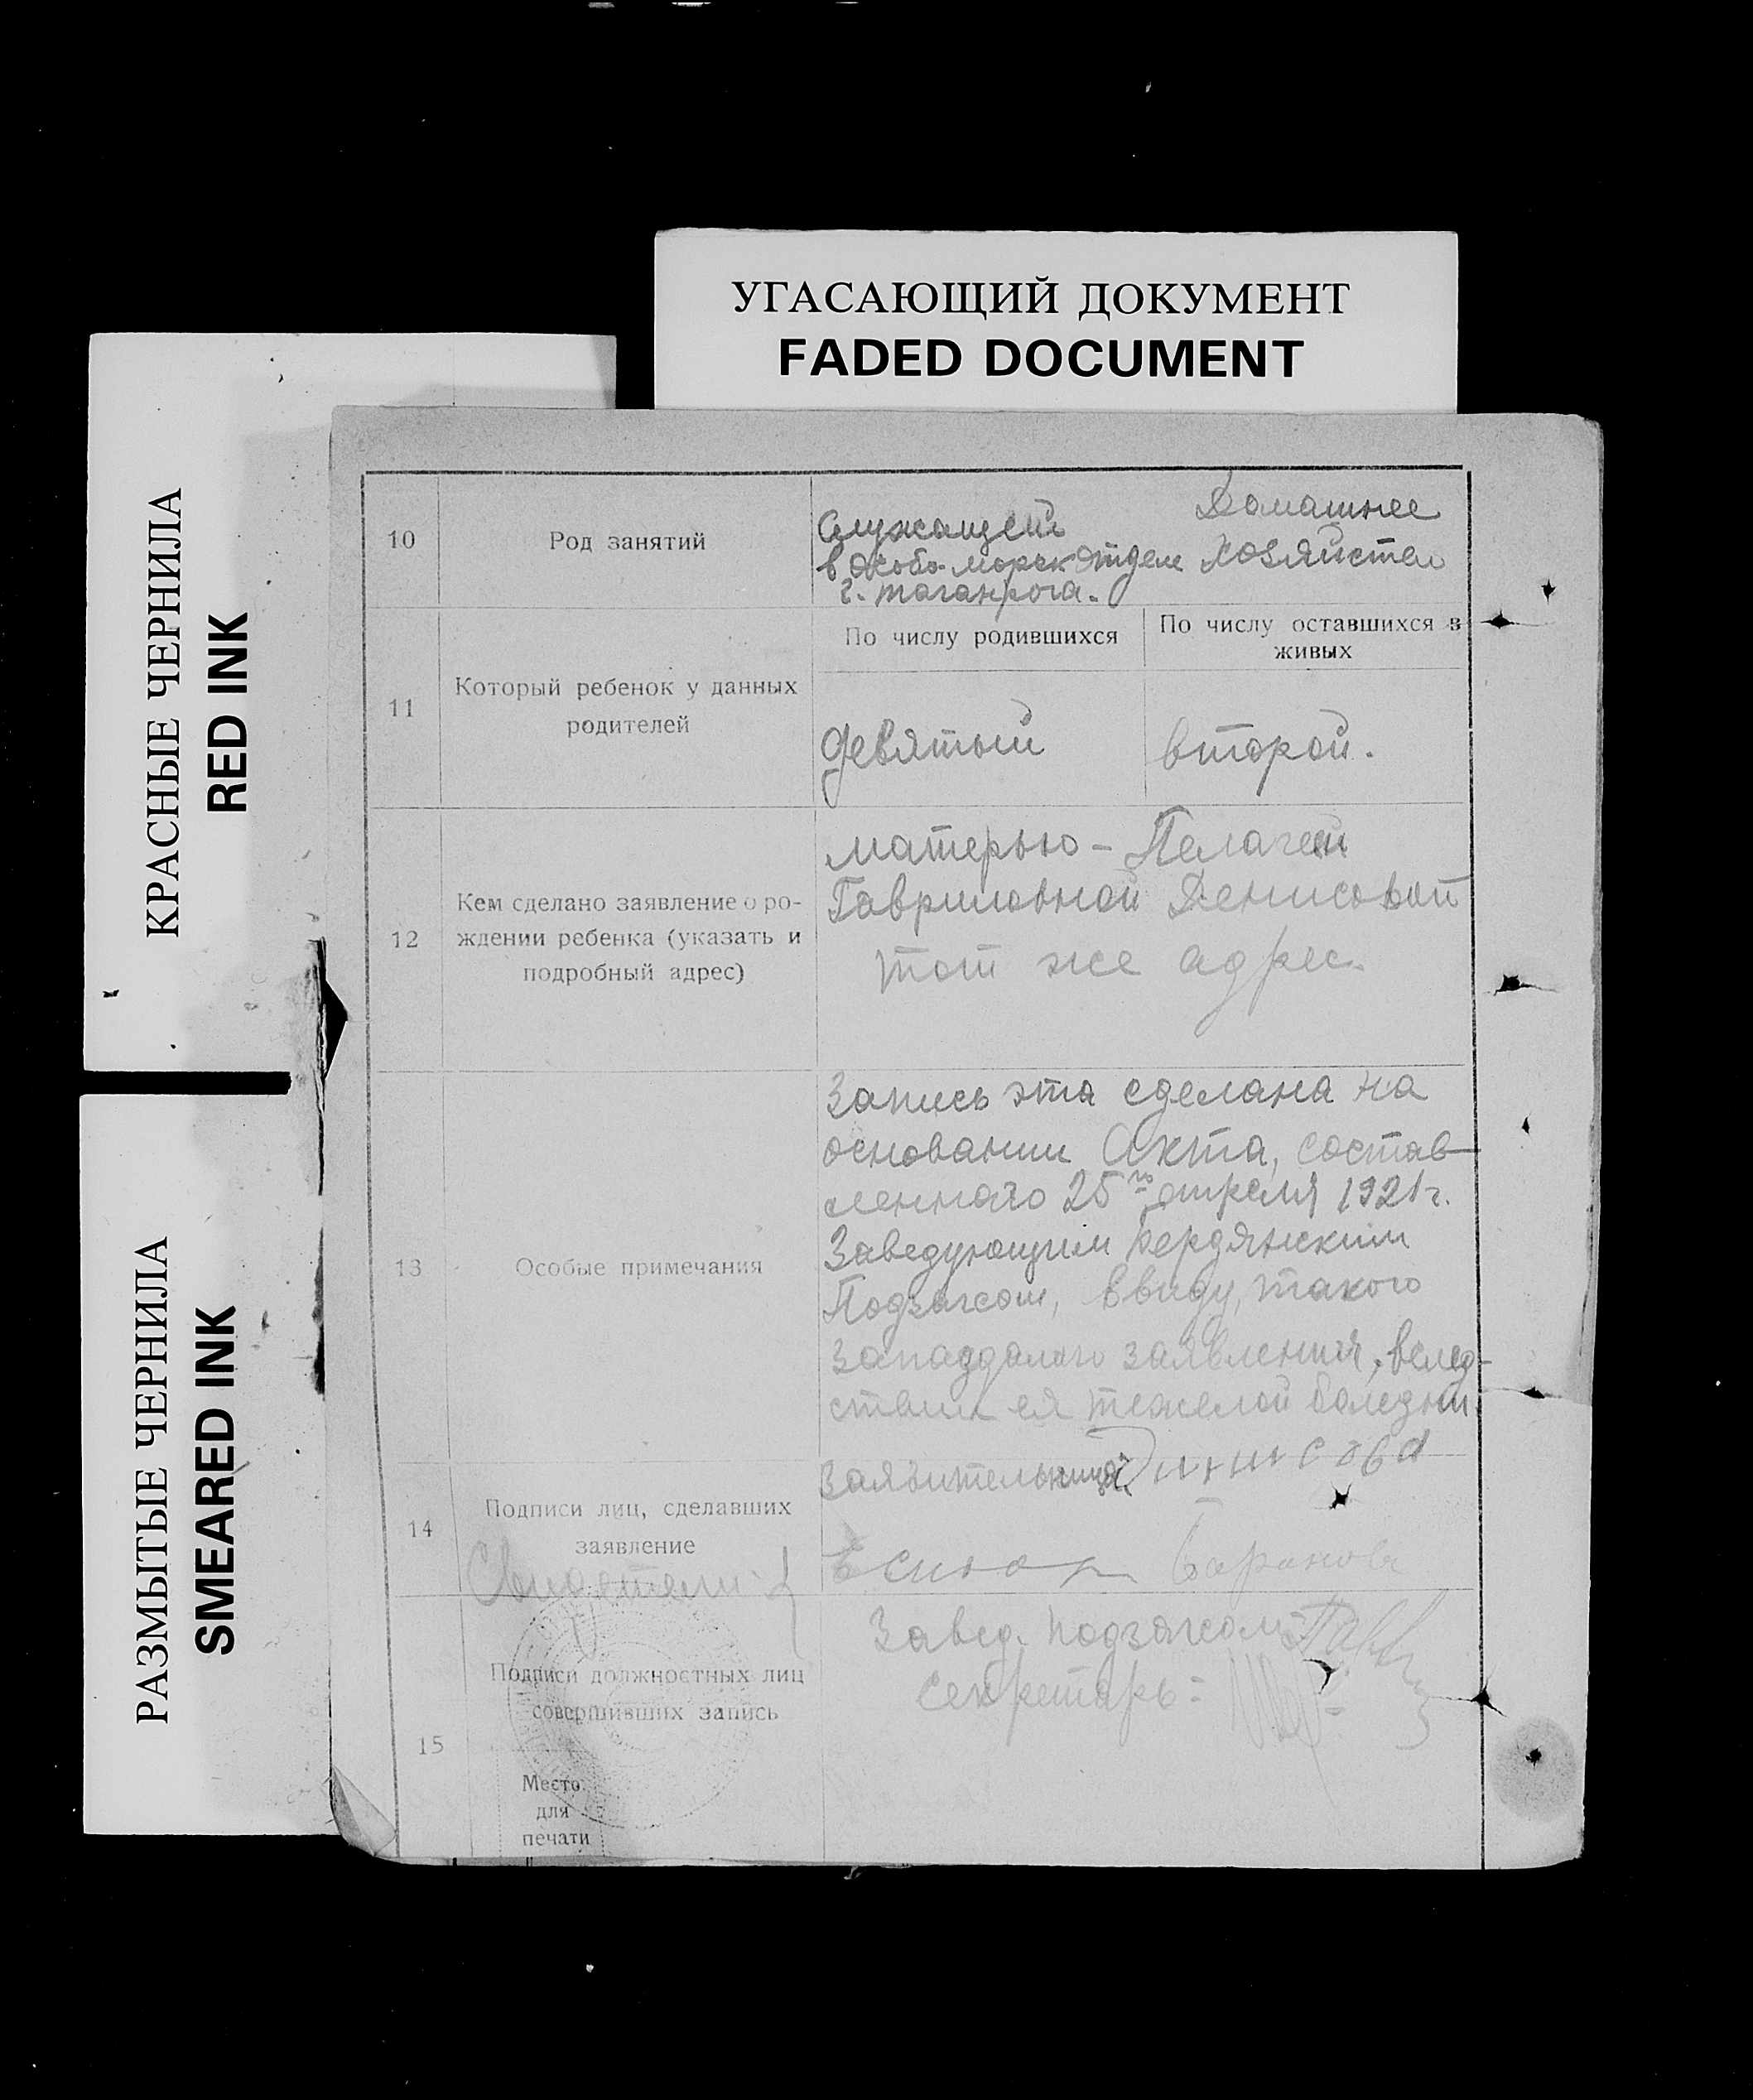 УГАСАЮЩИЙ ДОКУМЕНТ
FADED DOCUMENT
КРАСНЫЕ ЧЕРНИЛА
RED INK
РАЗМЫТЫЕ ЧЕРНИЛА
SMEARED INK
10
Род занятий
Служащий
в Особо-морск отделе
г. таганрога.
Домашнее
Хозяйство
11
Который ребенок у данных
родителей
По числу родившихся
По числу оставшихся в
живых
девятый
второй.
12
Кем сделано заявление о ро-
ждении ребенка (указать и
подробный адрес)
матерью - Пелагеей
Гавриловной Денисовой
тот же адрес.
13
Особые примечания
Запись эта сделана на
основании Акта, состав-
леннаго 25го апреля 1921 г.
Заведующим Бердянским
Подзагсом, ввиду такого
запоздалаго заявления, вслед-
ствии ея тяжелой болезни.
14
Подписи лиц, сделавших
заявление
Свидетели:
Заявительница
Баранова
15
Подписи должностных лиц
совершивших запись
Место
для
печати
Завед. подзагсом:
Секретарь: